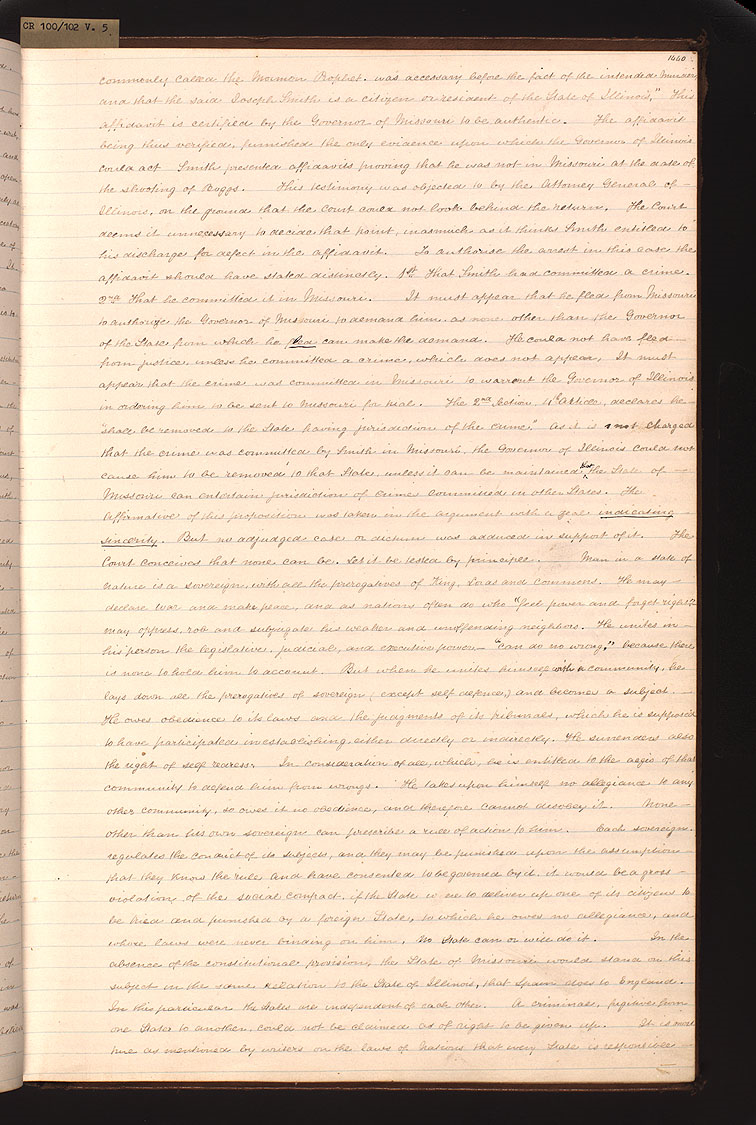 CR 100/102 V. 5
1660
commonly called the Mormon Prophet. was accessary before the fact of the intended murder
and that the said Joseph Smith is a citizen or resident of the State of Illinois," This
affidavit is certified by the Governor of Missouri to be authentic. The affidavit
being thus verified, furnished the only evidence upon which the Governor of Illinois
could act Smith presented affidavits proving that he was not in Missouri at the date of
the shooting of Boggs. This testimony was objected to by the Attorney General of —
Illinois, on the ground that the Court could not look behind the return. The Court
deems it unnecessary to decide that point, inasmuch as it thinks Smith entitled to
his discharge for defect in the affidavit. To authorise the arrest in this case the
affidavit should have stated distinctly. 1st That Smith had committed a crime.
2nd That he committed it in Missouri. It must appear that he fled from Missouri
to authorize the Governor of Missouri to demand him. as none other than the Governor
of the State from which he fled can make the demand. He could not have fled —
from justice, unless he committed a crime, which does not appear, It must
appear that the crime was committed in Missouri to warrant the Governor of Illinois
in ordering him to be sent to Missouri for trial. The 2nd Section, 4th Article, declares he —
"shall be removed to the State having jurisdiction of the crime." As it is not charged
that the crime was committed by Smith in Missouri, the Governor of Illinois could not
cause him to be removed to that State, unless it can be maintained that the State of —
Missouri can entertain jurisdiction of crimes committed in other States. The
affirmative of this proposition was taken in the argument with a zeal indicating
sincerity. But no adjudged case or dictum was adduced in support of it. The
Court conceives that none can be. Let it be tested by principle. Man in a state of
nature is a sovereign, with all the prerogatives of King, Lords and commons. He may —
declare war and make peace, and as nations often do who "feel power and forget right"
may oppress, rob and subjugate his weaker and unoffending neighbors. He unites in —
his person the legislative, judicial, and executive power— "can do no wrong," because there
is none to hold him to account. But when he unites himself with a community, he
lays down all the prerogatives of sovereign (except self defence,) and becomes a subject. —
He owes obedience to its laws and the judgments of its tribunals, which he is supposed
to have participated in establishing, either directly or indirectly. He surrenders also
the right of self redress. In consideration of all, which, he is entitled to the aegis of that
community to defend him from wrongs. He takes upon himself no allegiance to any
other community, so owes it no obedience, and therefore cannot disobey it. None —
other than his own sovereign can prescribe a rule of action to him. Each sovereign
regulates the conduct of its subjects, and they may be punished upon the assumption —
that they know the rule and have consented to be governed by it. it would be a gross —
violation of the social compact, if the State were to deliver up one of its citizens to
be tried and punished by a foreign State, to which he owes no allegiance, and
whose laws were never binding on him. No State can or will do it. In the
absence of the constitutional provision, the State of Missouri would stand on this
subject in the same relation to the State of Illinois, that Spain does to England.
In this particular the States are independent of each other. A criminal, fugitive from
one State to another, could not be claimed as of right to be given up. It is most
true as mentioned by writers on the laws of Nations that every State is responsible —